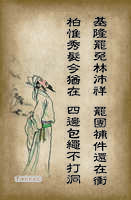 基隆罷免林沛祥 罷團補件還在衝
柏惟秀髮今猶在 四邊包繩不打洞